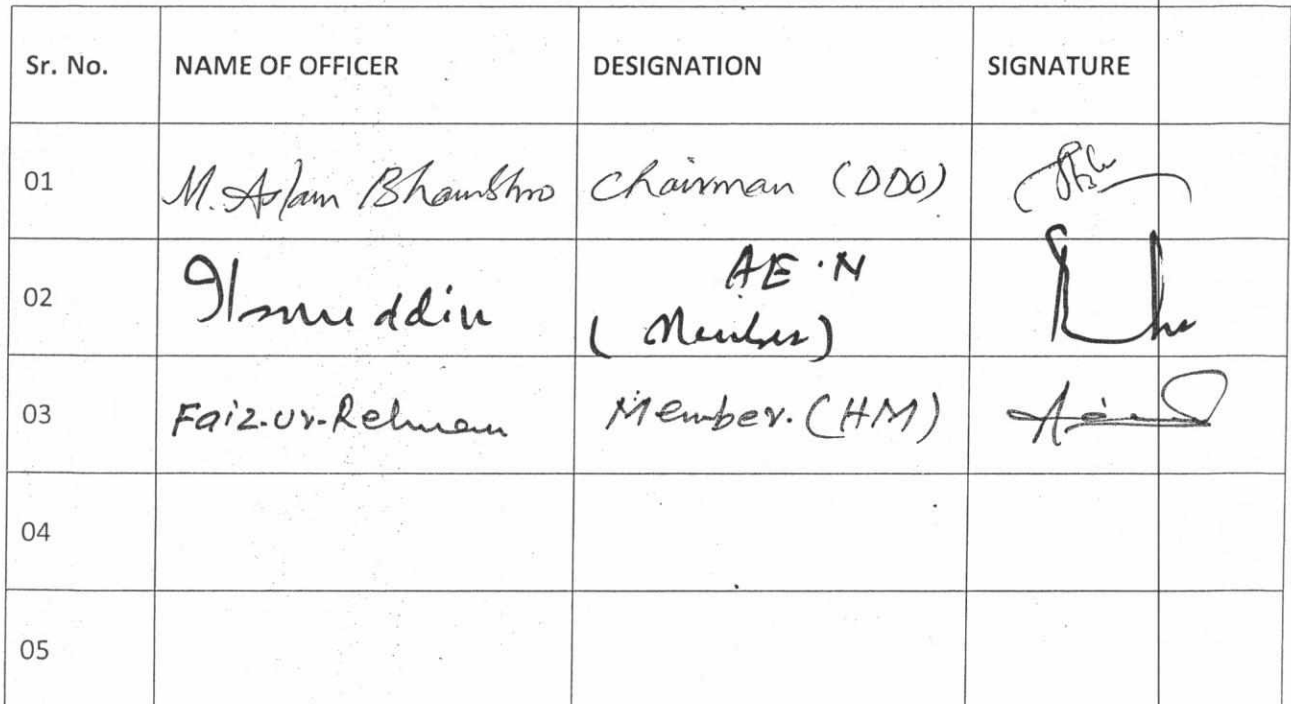 Sr. No. NAME OF OFFICER DESIGNATION SIGNATURE
01 M. Aslam Bhambhro Chairman (DDO)
AE.N
02 Ilmuddin (Member)
03 Faiz-ur-Rehman Member. (HM)
04
05